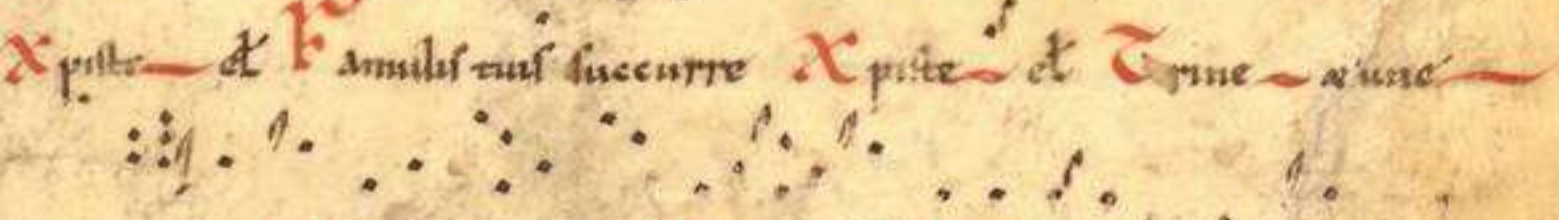 Xpiste el Famulis tuis succurre Xpiste el Trine æ une